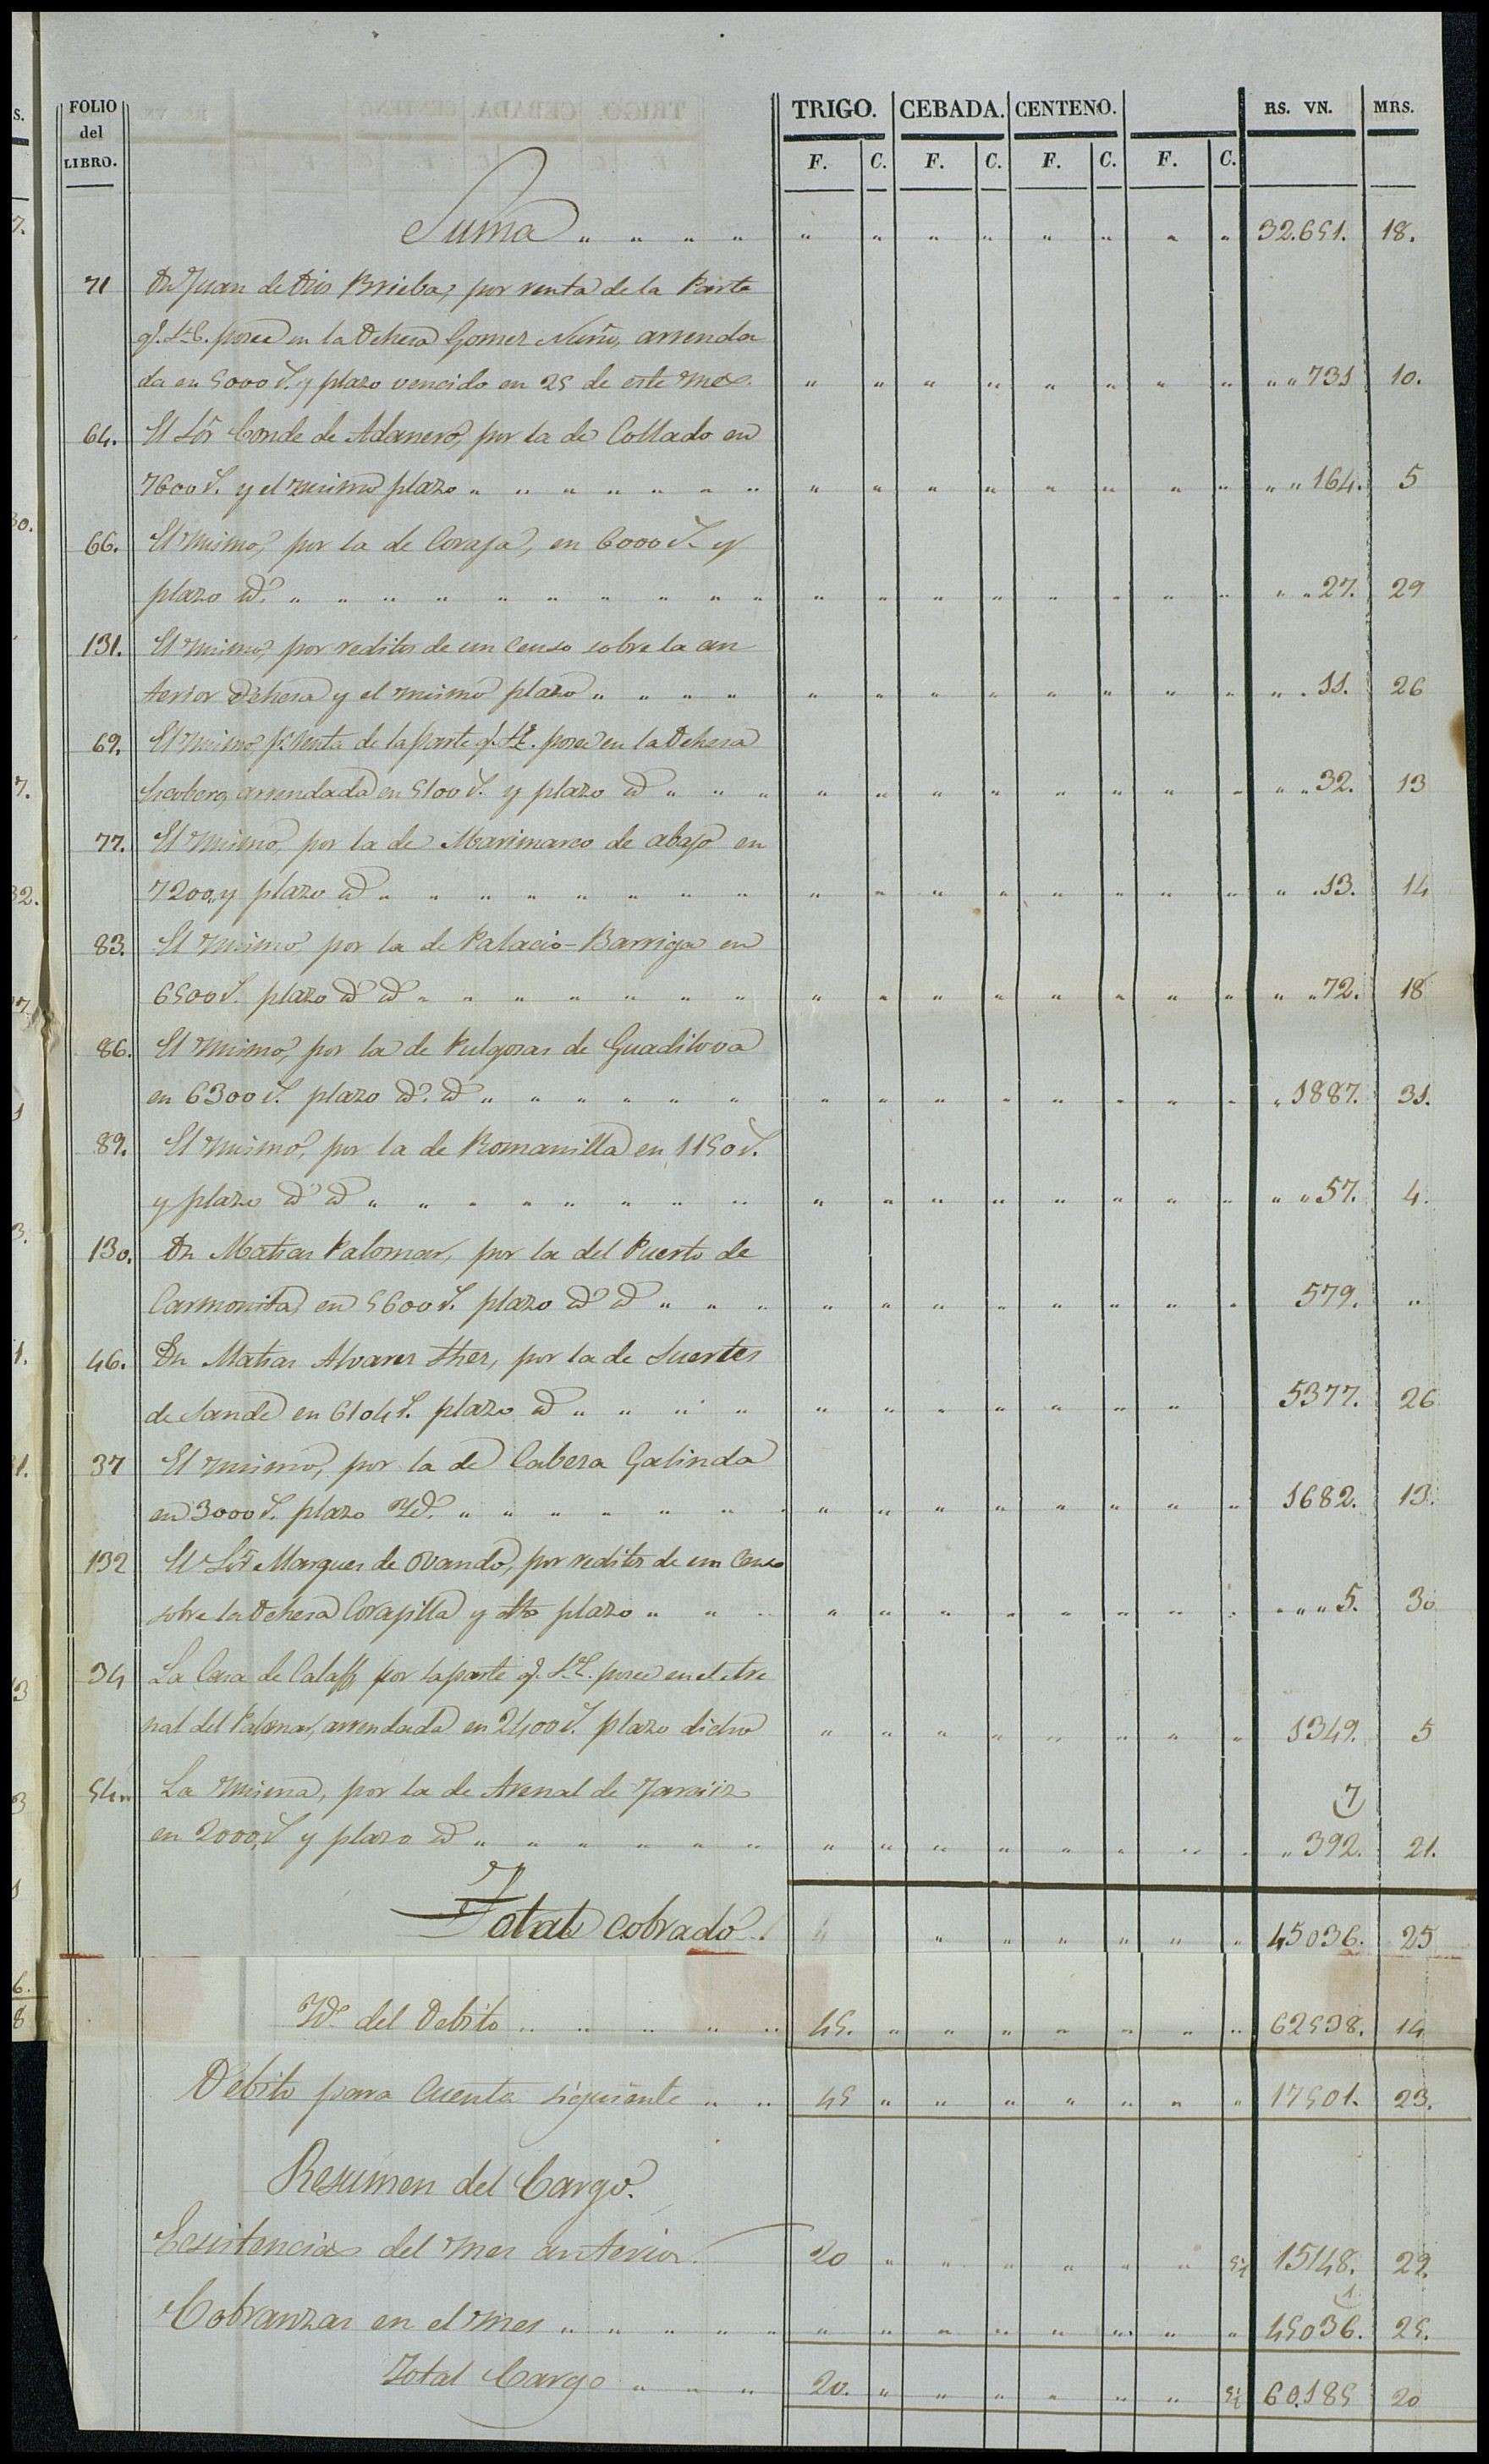 FOLIO del LIBRO. TRIGO. CEBADA. CENTENO. RS. VN. MRS.
F. C. F. C. F. C. F. C.
Suma " " " " " " " " " " " " 32.651. 18.
71 Dn Juan de Dios Brieba, por renta de la Parte
q.e S.E. posee en la Dehesa Gomez Nuño, arrenda
da en 5000 r.s y plazo vencido en 25 de este mes. " " " " " " " " " " 731 10.
64. El Sõr Conde de Adanero, por la de Collado en
7600 r.s y el mismo plazo " " " " " " " " " " " " " " " " " 164. 5
66. El mismo, por la de Coraja, en 6000 r.s y
plazo id.o " " " " " " " " " " " " " " " " " " " " 27. 29
131. El mismo, por reditos de un Censo sobre la an
terior Dehesa y el mismo plazo " " " " " " " " " " " " " " 11. 26
69. El mismo p.r renta de la parte q.e S.E. posee en la Dehesa
arrendada en 5100 r.s y plazo id " " " " " " " " " " " " " 32. 13
77. El mismo, por la de Marimarco de abajo en
7200, y plazo id " " " " " " " " " " " " " " " " " " 13. 14
83. El mismo, por la de Palacio-Barriga en
6500 r.s plazo id id " " " " " " " " " " " " " " " " " 72. 18
86. El mismo, por la de Pulgosas de Guadilova
en 6300 r.s plazo id.o id " " " " " " " " " " " " " " " 1887. 31.
89. El mismo, por la de Romanilla en 1150 r.s
y plazo id id " " " " " " " " " " " " " " " " " " 57. 4.
130. Dn Matias Palomar, por la del Puerto de
Carmonita, en 5600 r.s plazo id id " " " " " " " " " " " 579. "
46. Dn Matias Alvarez thez, por la de Suertes
de Sande en 6104 r.s plazo id " " " " " " " " " " " 5377. 26
37 El mismo, por la de Cabeza Galinda
en 3000 r.s plazo Yd.o " " " " " " " " " " " " " " " 1682. 13.
132 El Sõr Marques de Ovando, por reditos de un Censo
sobre la Dehesa Corapilla y dho plazo " " " " " " " " " " " " " " 5. 30
34 La Casa de Calaff, por la parte q.e S.E. posee en el
del Palomar, arrendada en 2400 r.s plazo dicho " " " " " " " " 1349. 5
54 " La misma, por la de Arenal de Jaraiz
7
en 2000 r.s y plazo id " " " " " " " " " " " " " " " " 392. 21.
Total cobrado. " " " " " " 45036. 25
Yd.o del Debito " " " " " 45. " " " " " " " 62538. 14
Debito para Cuenta siguiente " " 45 " " " " " " " 17501. 23.
Resumen del Cargo.
Existencias del mes anterior. 20 " " " " " " 5½ 15148. 29.
1
Cobranzas en el mes " " " " " " " " " " " " " 45036. 25.
Total Cargo " " " 20. " " " " " " 5½ 60.185 20